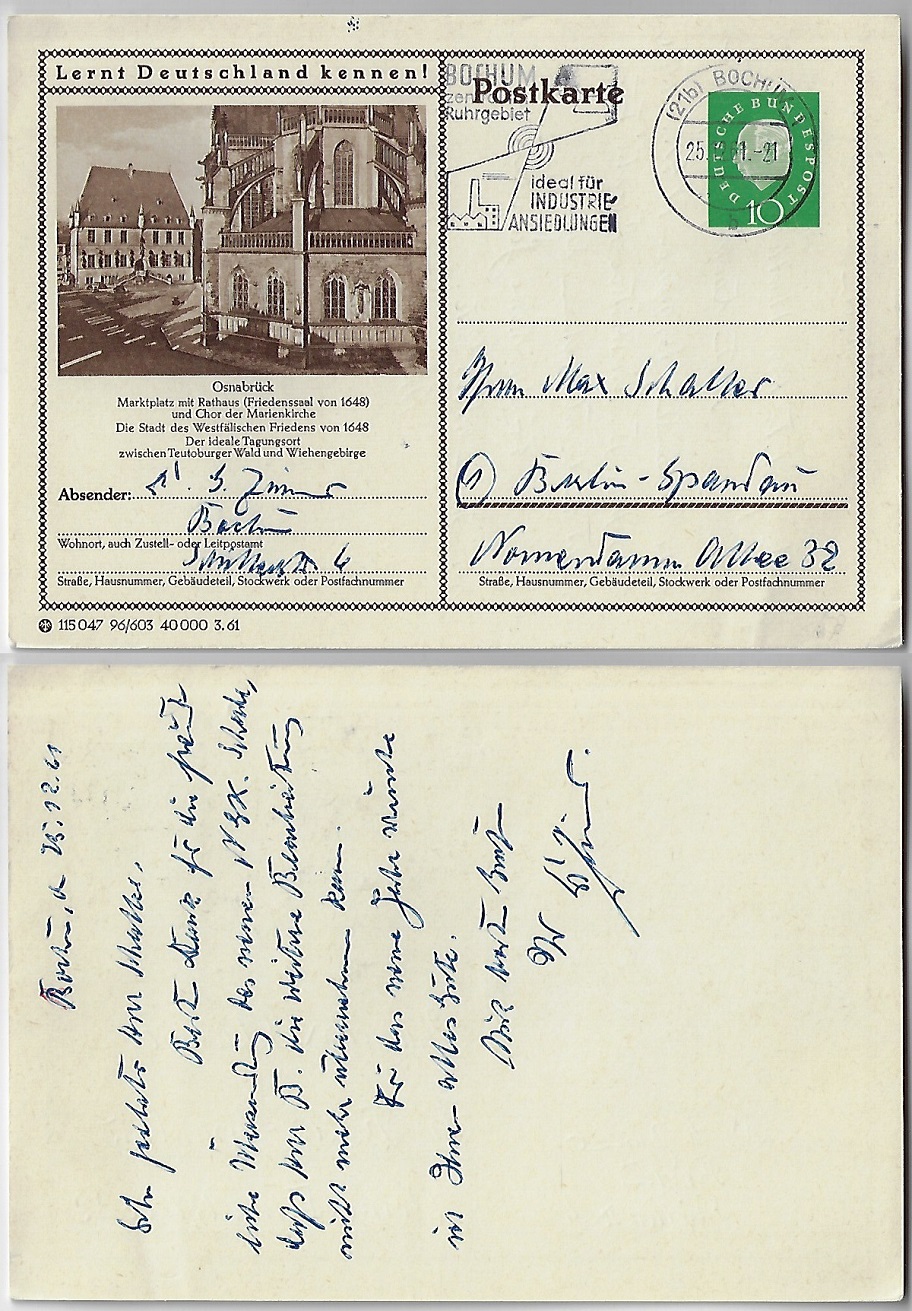 Lernt Deutschland kennen!
Osnabrück
Marktplatz mit Rathaus (Friedenssaal von 1648)
und Chor der Marienkirche
Die Stadt des Westfälischen Friedens von 1648
Der ideale Tagungsort
zwischen Teutoburger Wald und Wiehengebirge
Absender:
Bochum
Wohnort, auch Zustell- oder Leitpostamt
6
Straße, Hausnummer, Gebäudeteil, Stockwerk oder Postfachnummer
115 047 96/603 40 000 3.61
Postkarte
BOCHUM
Ruhrgebiet
ideal für
INDUSTRIE
ANSIEDLUNGEN
(21b) BOCHUM
25. 61.-21
b
DEUTSCHE BUNDESPOST
10
Herrn Max Schaller
(1) Berlin-Spandau
Allee 32
Straße, Hausnummer, Gebäudeteil, Stockwerk oder Postfachnummer
Bochum, d 25.12.61
Sehr Herr Schaller,
Dank für die
des neuen
daß Herr B. die weitere Bearbeitung
nicht mehr übernehmen kann.
Für das neue Jahr wünsche
ich Ihnen alles Gute.
Mit